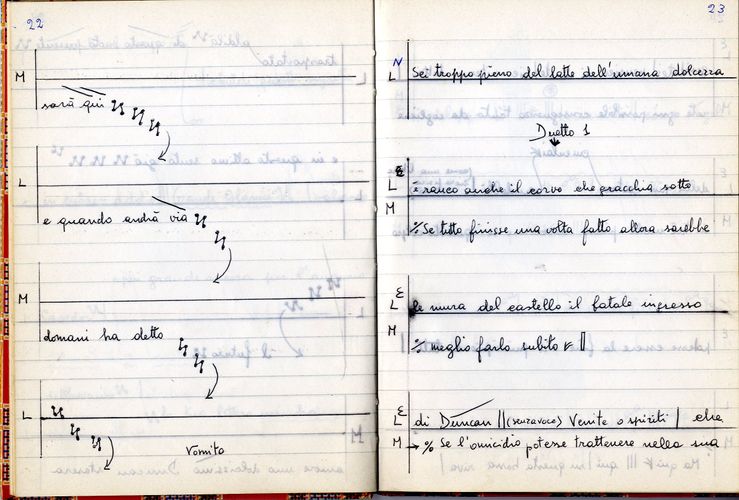 22
M
sarà qui
L
e quando andrà via
M
domani ha detto
L
Vomito
23
N
L Sei troppo pieno del latte dell'umana dolcezza
Duetto 1
E
L è rauco anche il corvo che gracchia sotto
M % Se tutto finisse una volta fatto allora sarebbe
E
L le mura del castello il fatale ingresso
M % meglio farlo subito
E
L di Duncan || (senzavoce) Venite o spiriti | che
M → % Se l'omicidio potesse trattenere nella sua